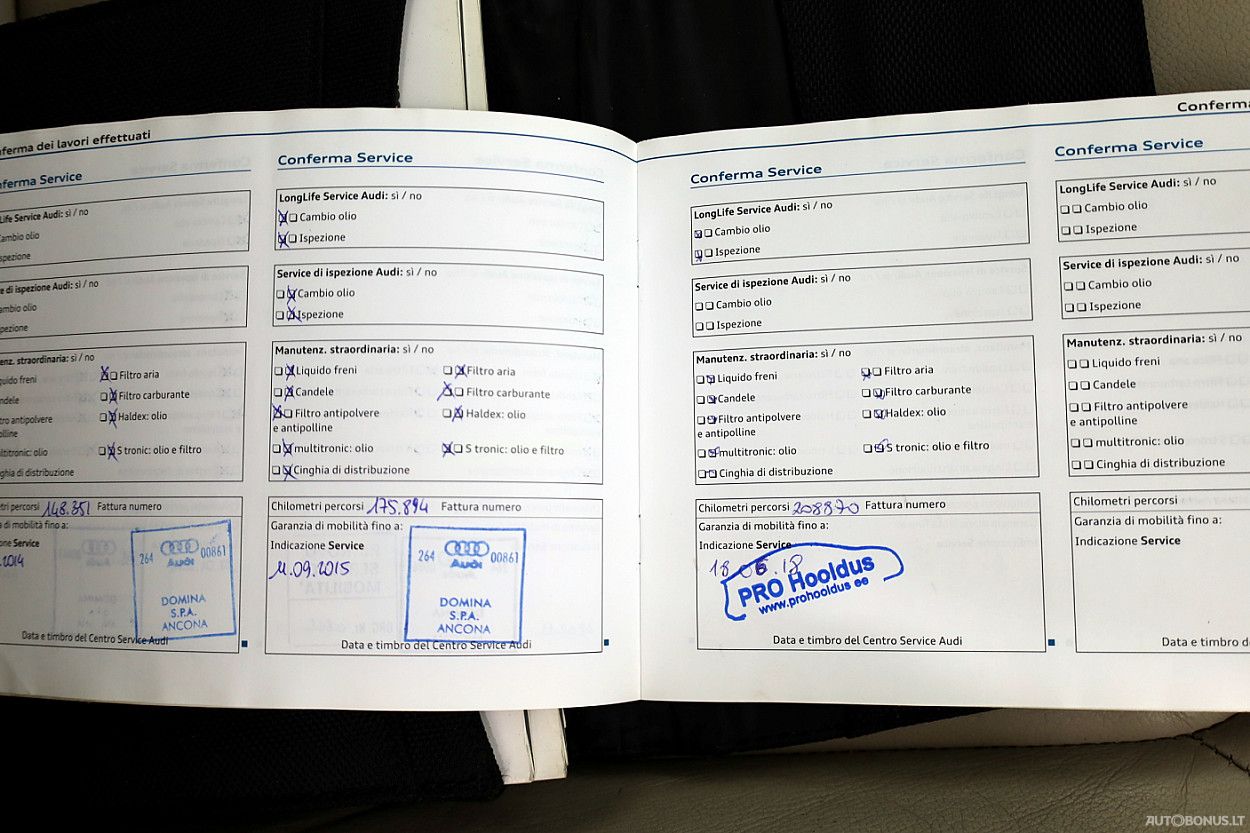 nferma dei lavori effettuati
nferma Service
Life Service Audi: sì / no
ambio olio
spezione
e di ispezione Audi: sì / no
ambio olio
pezione
enz. straordinaria: sì / no
quido freni
Filtro aria
ndele
Filtro carburante
tro antipolvere
olline
Haldex: olio
ltitronic: olio
S tronic: olio e filtro
ghia di distribuzione
tri percorsi 148.351 Fattura numero
a di mobilità fino a:
one Service
2014
264 00861
Audi
DOMINA
S.P.A.
ANCONA
Data e timbro del Centro Service Audi
Conferma Service
LongLife Service Audi: sì / no
Cambio olio
Ispezione
Service di ispezione Audi: sì / no
Cambio olio
Ispezione
Manutenz. straordinaria: sì / no
Liquido freni
Filtro aria
Candele
Filtro carburante
Filtro antipolvere
e antipolline
Haldex: olio
multitronic: olio
S tronic: olio e filtro
Cinghia di distribuzione
Chilometri percorsi 175.894 Fattura numero
Garanzia di mobilità fino a:
Indicazione Service
11.09.2015
264 00861
Audi
DOMINA
S.P.A.
ANCONA
Data e timbro del Centro Service Audi
Conferma Service
LongLife Service Audi: sì / no
Cambio olio
Ispezione
Service di ispezione Audi: sì / no
Cambio olio
Ispezione
Manutenz. straordinaria: sì / no
Liquido freni
Filtro aria
Candele
Filtro carburante
Filtro antipolvere
e antipolline
Haldex: olio
multitronic: olio
S tronic: olio e filtro
Cinghia di distribuzione
Chilometri percorsi 208970 Fattura numero
Garanzia di mobilità fino a:
Indicazione Service
18.06.18
PRO Hooldus
www.prohooldus.ee
Data e timbro del Centro Service Audi
Conferma
Conferma Service
LongLife Service Audi: sì / no
Cambio olio
Ispezione
Service di ispezione Audi: sì / no
Cambio olio
Ispezione
Manutenz. straordinaria: sì / no
Liquido freni
Candele
Filtro antipolvere
e antipolline
multitronic: olio
Cinghia di distribuzione
Chilometri percorsi
Garanzia di mobilità fino a:
Indicazione Service
Data e timbro d
AUTOBONUS.LT